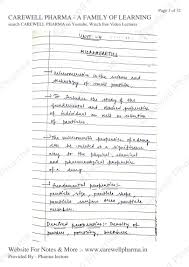 Page 1 of 12
CAREWELL PHARMA - A FAMILY OF LEARNING
search CAREWELL PHARMA on Youtube, Watch free Video Lectures
UNIT-4
MICROMERITICS
→ Micromeritics is the science and
→ It includes the study of the
fundamental and derived properties
of individual as well as collection
of particles.
→ The micromeritic properties of a drug
can be related in a significant
way to the physical, chemical
and pharmacological properties of a
drug.
→ Fundamental properties:-
particle size, particle shape,
particle surface area, particle
number.
Derived properties:- Density of
powders, porosity,
Website For Notes & More :- www.carewellpharma.in
Provided By - Pharma lecture